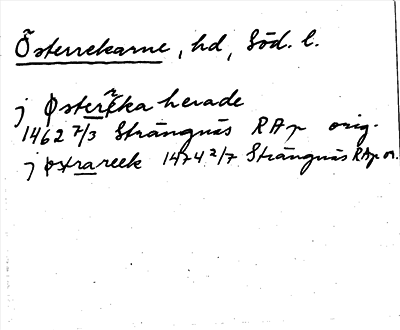 Österrekarne, hd, Söd. l.
j Østerĩka herade
1462 7/3 Strängnäs RAp orig.
j østrareek 1474 2/7 Strängnäs RAp or.